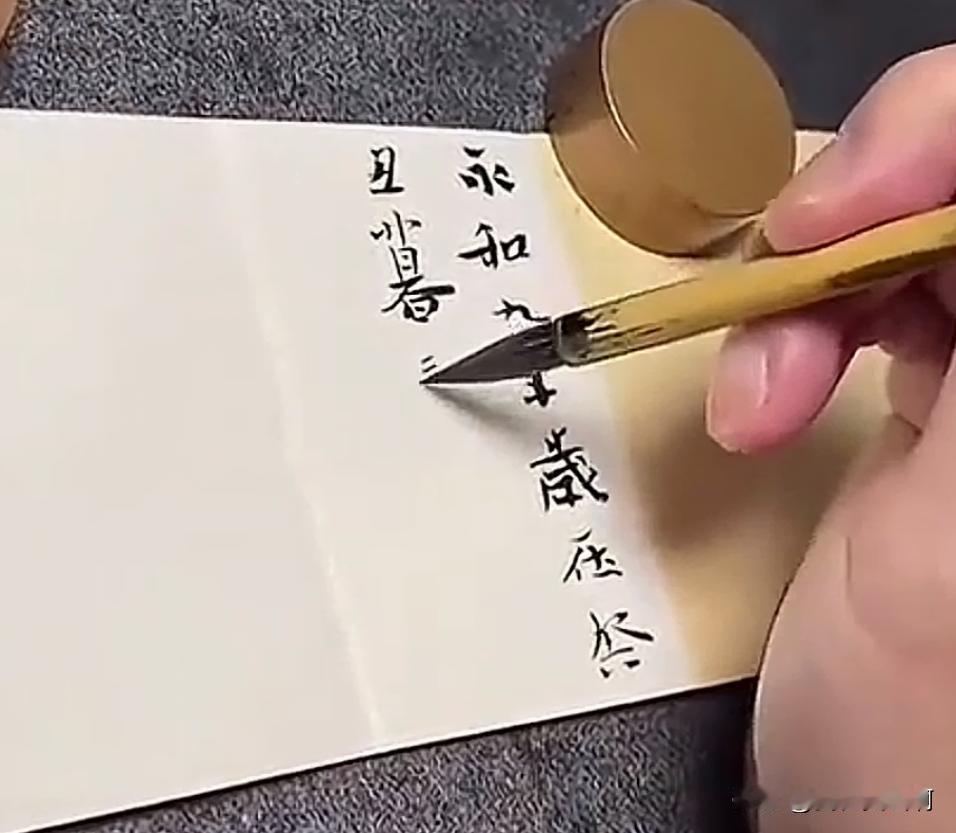 永和九歲在癸
丑暮